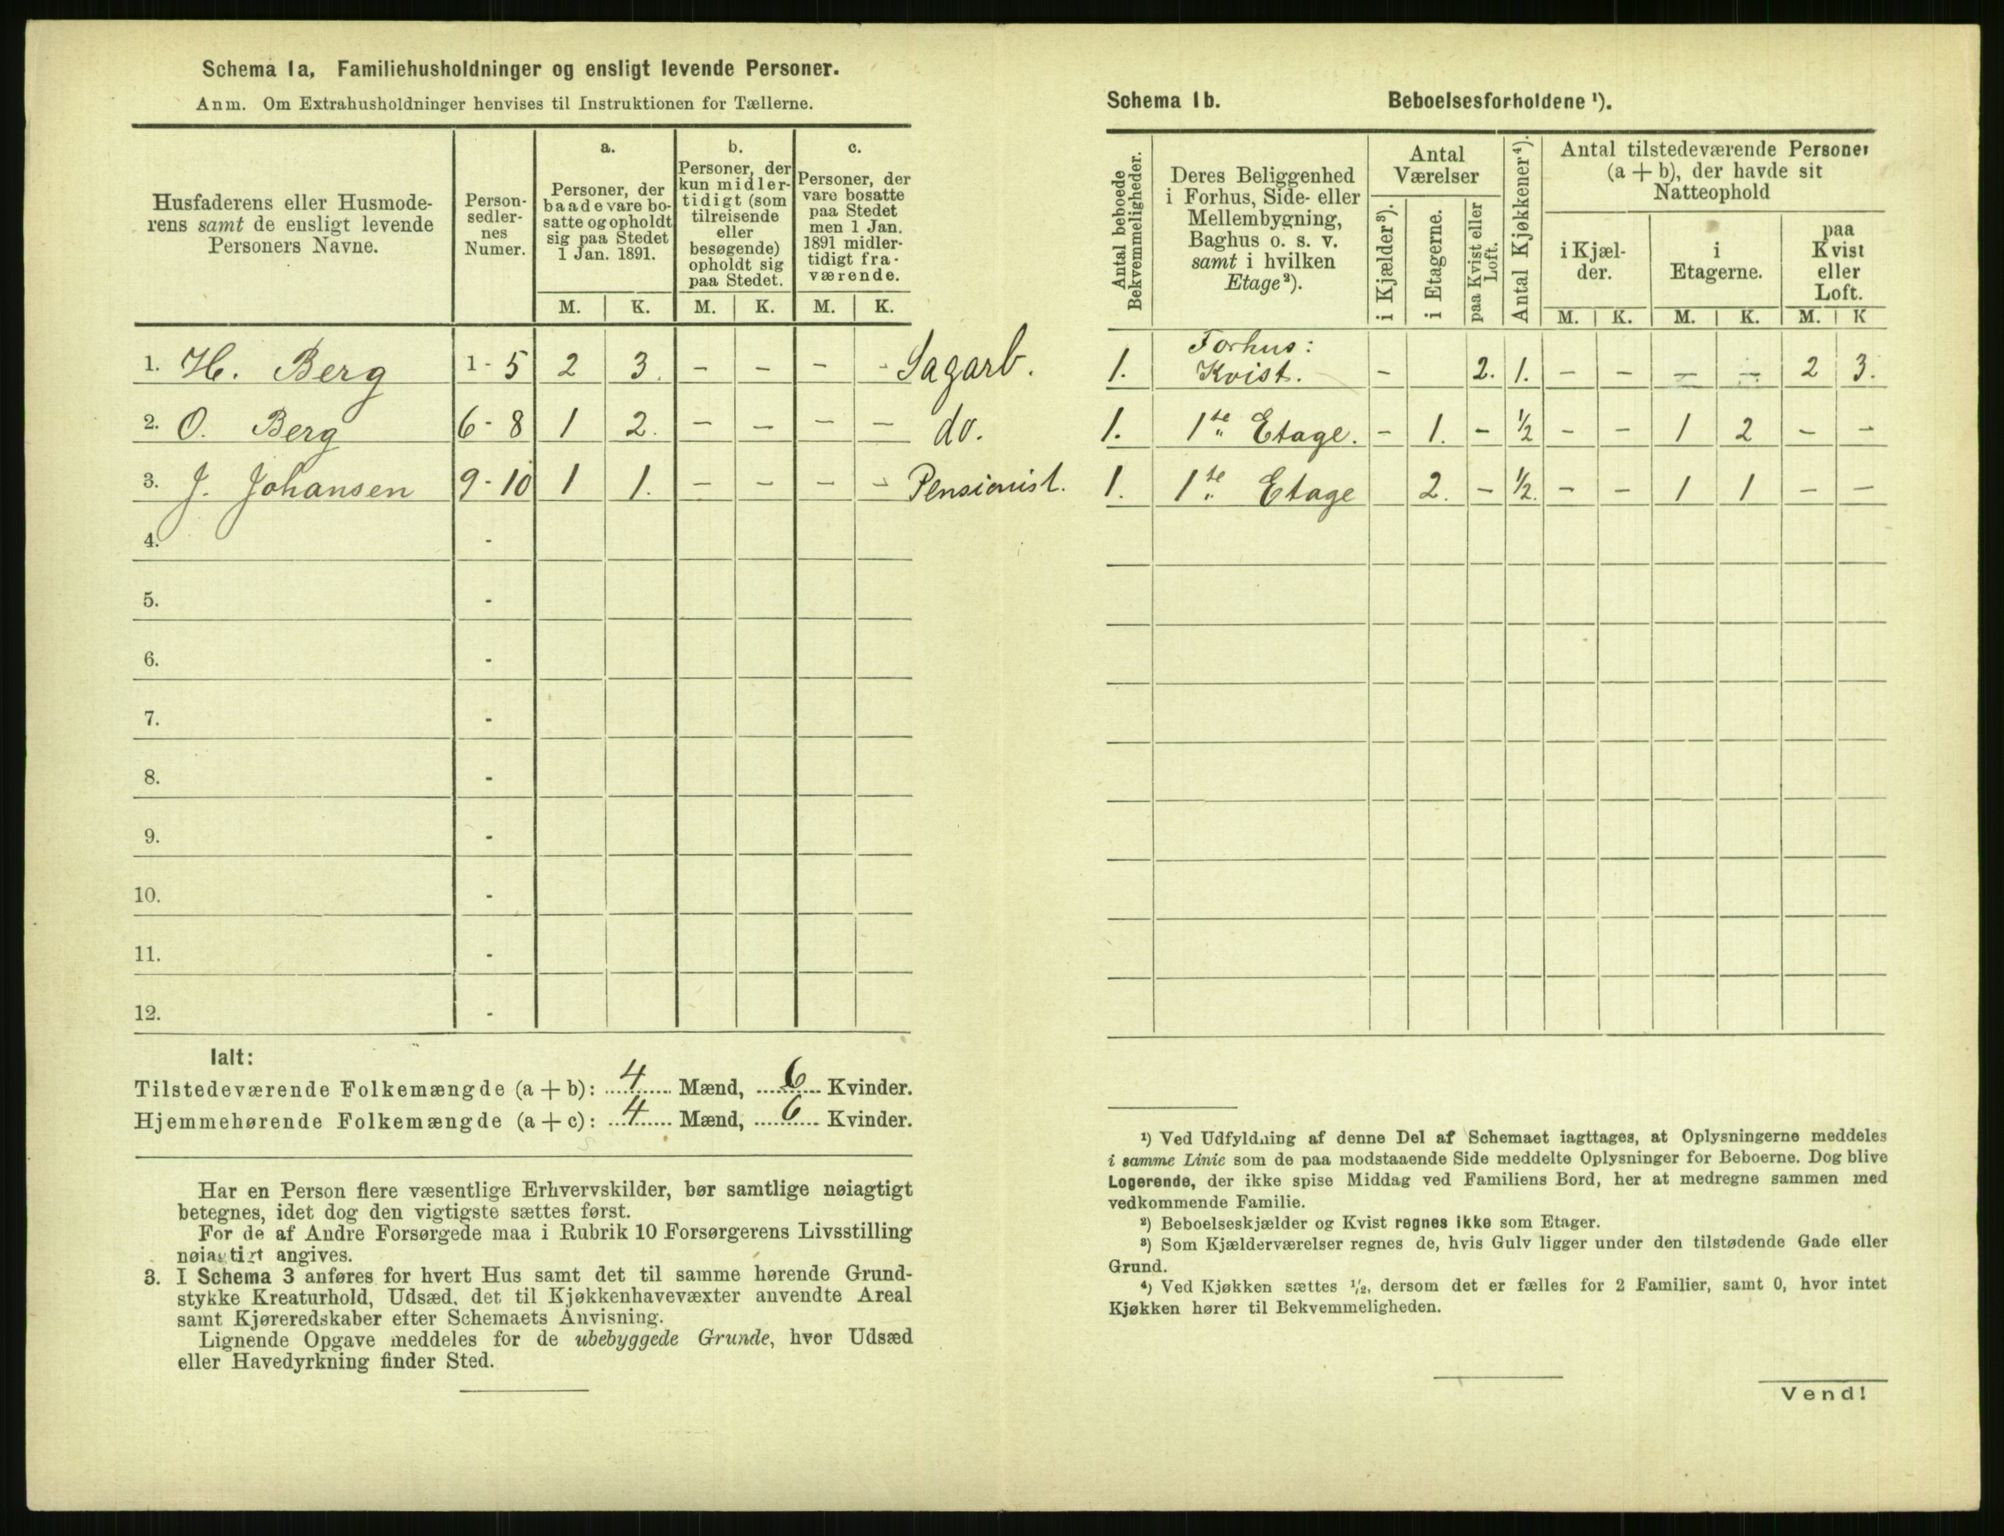 Schema 1a, Familiehusholdninger og ensligt levende Personer.
Anm. Om Extrahusholdninger henvises til Instruktionen for Tællerne.
Husfaderens eller Husmode-
rens samt de ensligt levende
Personers Navne.
Person-
sedler-
nes
Numer.
a.
Personer, der
baade vare bo-
satte og opholdt
sig paa Stedet
1 Jan. 1891.
b.
Personer, der
kun midler-
tidigt (som
tilreisende
eller
besøgende)
opholdt sig
paa Stedet.
c.
Personer, der
vare bosatte
paa Stedet
men 1 Jan.
1891 midler-
tidigt fra-
værende.
M. K. M. K. M. K.
1. H. Berg 1 - 5 2 3. - - - - Sagarb.
2. O. Berg 6 - 8 1 2. - - - - do.
3. J. Johansen 9 - 10 1 1. - - - - Pensionist.
4. -
5. -
6. -
7. -
8. -
9. -
10. -
11. -
12. -
Ialt:
Tilstedeværende Folkemængde (a + b): 4 Mænd, 6 Kvinder.
Hjemmehørende Folkemængde (a + c): 4 Mænd, 6 Kvinder.
Har en Person flere væsentlige Erhvervskilder, bør samtlige nøiagtigt
betegnes, idet dog den vigtigste sættes først.
For de af Andre Forsørgede maa i Rubrik 10 Forsørgerens Livsstilling
nøiagtigt angives.
3. I Schema 3 anføres for hvert Hus samt det til samme hørende Grund-
stykke Kreaturhold, Udsæd, det til Kjøkkenhavevæxter anvendte Areal
samt Kjøreredskaber efter Schemaets Anvisning.
Lignende Opgave meddeles for de ubebyggede Grunde, hvor Udsæd
eller Havedyrkning finder Sted.
Schema 1b. Beboelsesforholdene ¹).
Antal beboede
Bekvemmeligheder.
Deres Beliggenhed
i Forhus, Side- eller
Mellembygning,
Baghus o. s. v.
samt i hvilken
Etage²).
Antal
Værelser
i Kjælder³).
i Etagerne.
paa Kvist eller
Loft.
Antal Kjøkkener⁴).
Antal tilstedeværende Personer
(a + b), der havde sit
Natteophold
i Kjæl-
der.
i
Etagerne.
paa
Kvist
eller
Loft.
M. K. M. K. M. K
1. Forhus:
Kvist. - 2. 1. - - - - 2 3.
1. 1ste Etage. - 1. - ½ - - 1 2 - -
1. 1ste Etage 2. - ½. - - 1 1 - -
¹) Ved Udfyldning af denne Del af Schemaet iagttages, at Oplysningerne meddeles
i samme Linie som de paa modstaaende Side meddelte Oplysninger for Beboerne. Dog blive
Logerende, der ikke spise Middag ved Familiens Bord, her at medregne sammen med
vedkommende Familie.
²) Beboelseskjælder og Kvist regnes ikke som Etager.
³) Som Kjælderværelser regnes de, hvis Gulv ligger under den tilstødende Gade eller
Grund.
⁴) Ved Kjøkken sættes ½, dersom det er fælles for 2 Familier, samt 0, hvor intet
Kjøkken hører til Bekvemmeligheden.
Vend!